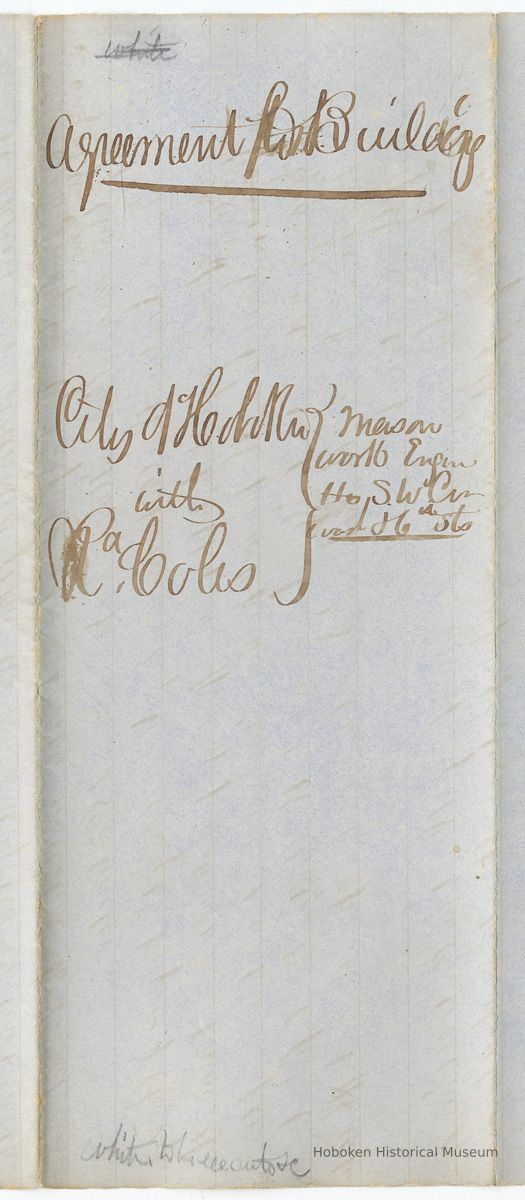 white
Agreement for Building
City of Hoboken
with
Ra. Coles
Mason
work Engin
Ho, S. W. Cor
6th Sts
white
Hoboken Historical Museum